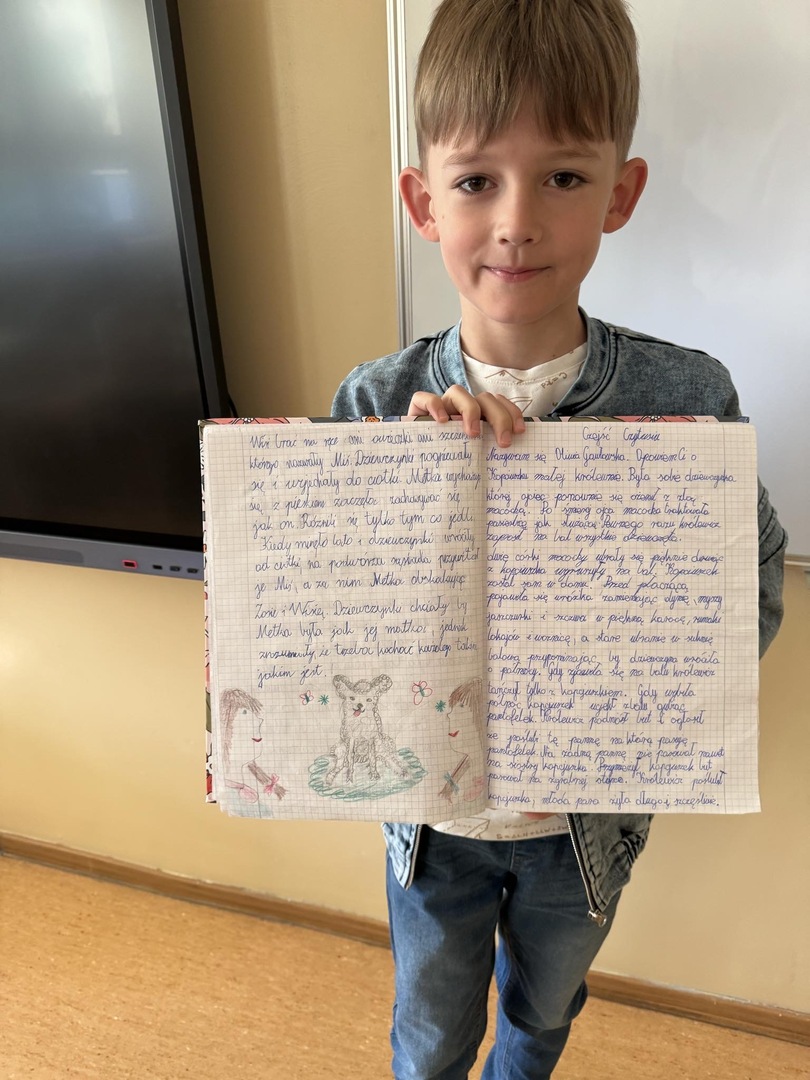 brać na ręce ani owieczki ani szczeniaka
którego nazwały Miś. Dziewczynki pożegnały
się i wyjechały do ciotki. Metka wychowując
się z pieskiem zaczęła zachowywać się
jak on. Różnili się tylko tym co jedli.
Kiedy minęło lato i dziewczynki wróciły
od ciotki na podwórzu sąsiada przywitał
je Miś, a za nim Metka obskakując
Zosię i Wisię. Dziewczynki chciały by
Metka była jak jej matka, jednak
zrozumiały, że trzeba kochać każdego takim
jakim jest.
Cześć Czytaciu
Nazywam się Oliwia Opowiem Ci o
Kopciuszku małej królewnie. Była sobie dziewczynka
której ojciec ponownie się ożenił z złą
macochą. Po śmierci ojca macocha traktowała
pasierbicę jak służącą. Pewnego razu królewicz
zaprosił na bal wszystkie
dwie córki macochy ubrały się pięknie
z kopciuszka wyruszyły na bal. Kopciuszek
został sam w domu. Przed płaczącą
pojawiła się wróżka zamieniając dynię, myszy
jaszczurki i szczura w piękną karocę, rumaki
lokajów i woźnicę, a stare ubranie w suknię
balową przypominając, by dziewczyna wróciła
o północy. Gdy zjawiła się na balu królewicz
tańczył tylko z kopciuszkiem. Gdy wybiła
północ kopciuszek uciekł z balu gubiąc
pantofelek. Królewicz podniósł but i ogłosił
że poślubi tę pannę na którą pasuje
pantofelek. Na żadną pannę nie pasował nawet
na siostry kopciuszka. Przymierzył kopciuszek but
pasował na zgrabnej stopce. Królewicz poślubił
kopciuszka, młoda para żyła długo i szczęśliwie.